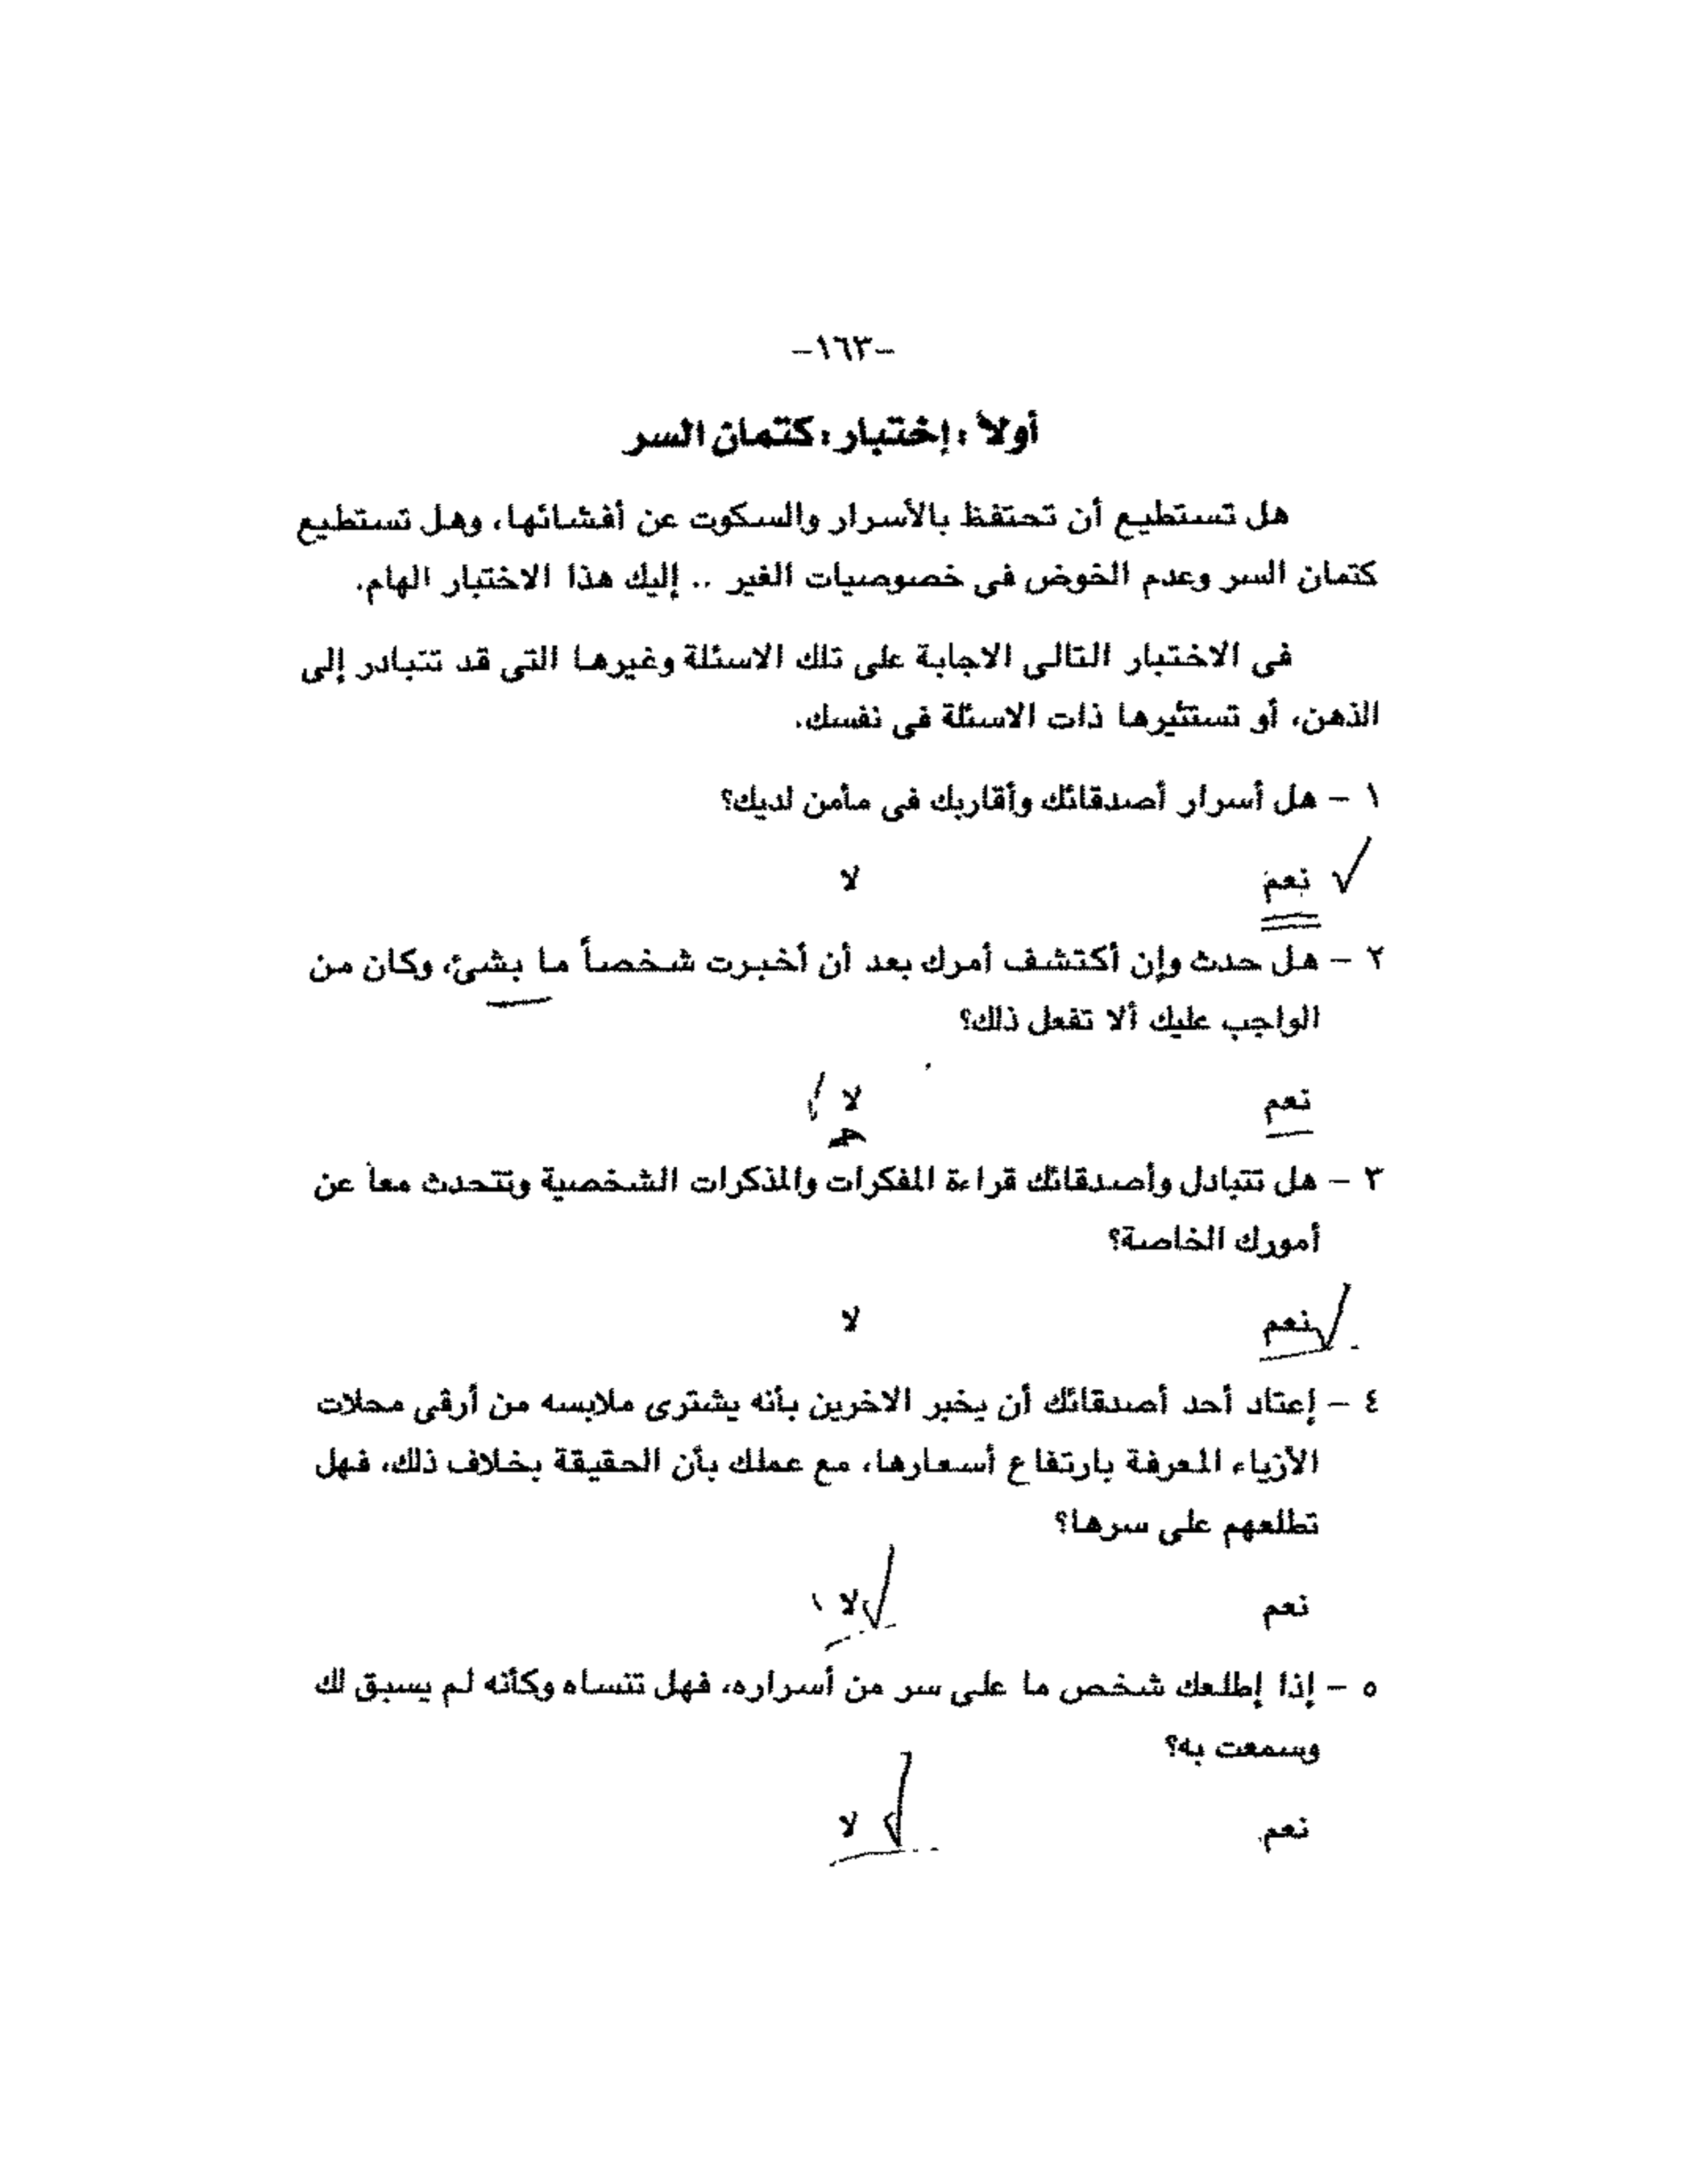 -١٦٣-
أولاً : إختبار : كتمان السر
هل تستطيع أن تحتفظ بالأسرار والسكوت عن أفشائها، وهل تستطيع
كتمان السر وعدم الخوض فى خصوصيات الغير .. إليك هذا الاختبار الهام.
فى الاختبار التالى الاجابة على تلك الاسئلة وغيرها التى قد تتبادر إلى
الذهن، أو تستثيرها ذات الاسئلة فى نفسك.
١ - هل أسرار أصدقائك وأقاربك فى مأمن لديك؟
√ نعم لا
٢ - هل حدث وإن أكتشف أمرك بعد أن أخبرت شخصاً ما بشئ، وكان من
الواجب عليك ألا تفعل ذلك؟
نعم لا √
٣ - هل تتبادل وأصدقائك قراءة المفكرات والمذكرات الشخصية وتتحدث معاً عن
أمورك الخاصة؟
√ نعم لا
٤ - إعتاد أحد أصدقائك أن يخبر الاخرين بأنه يشترى ملابسه من أرقى محلات
الأزياء المعرفة بارتفاع أسعارها، مع عملك بأن الحقيقة بخلاف ذلك، فهل
تطلعهم على سرها؟
نعم √ لا
٥ - إذا إطلعك شخص ما على سر من أسراره، فهل تنساه وكأنه لم يسبق لك
وسمعت به؟
نعم √ لا